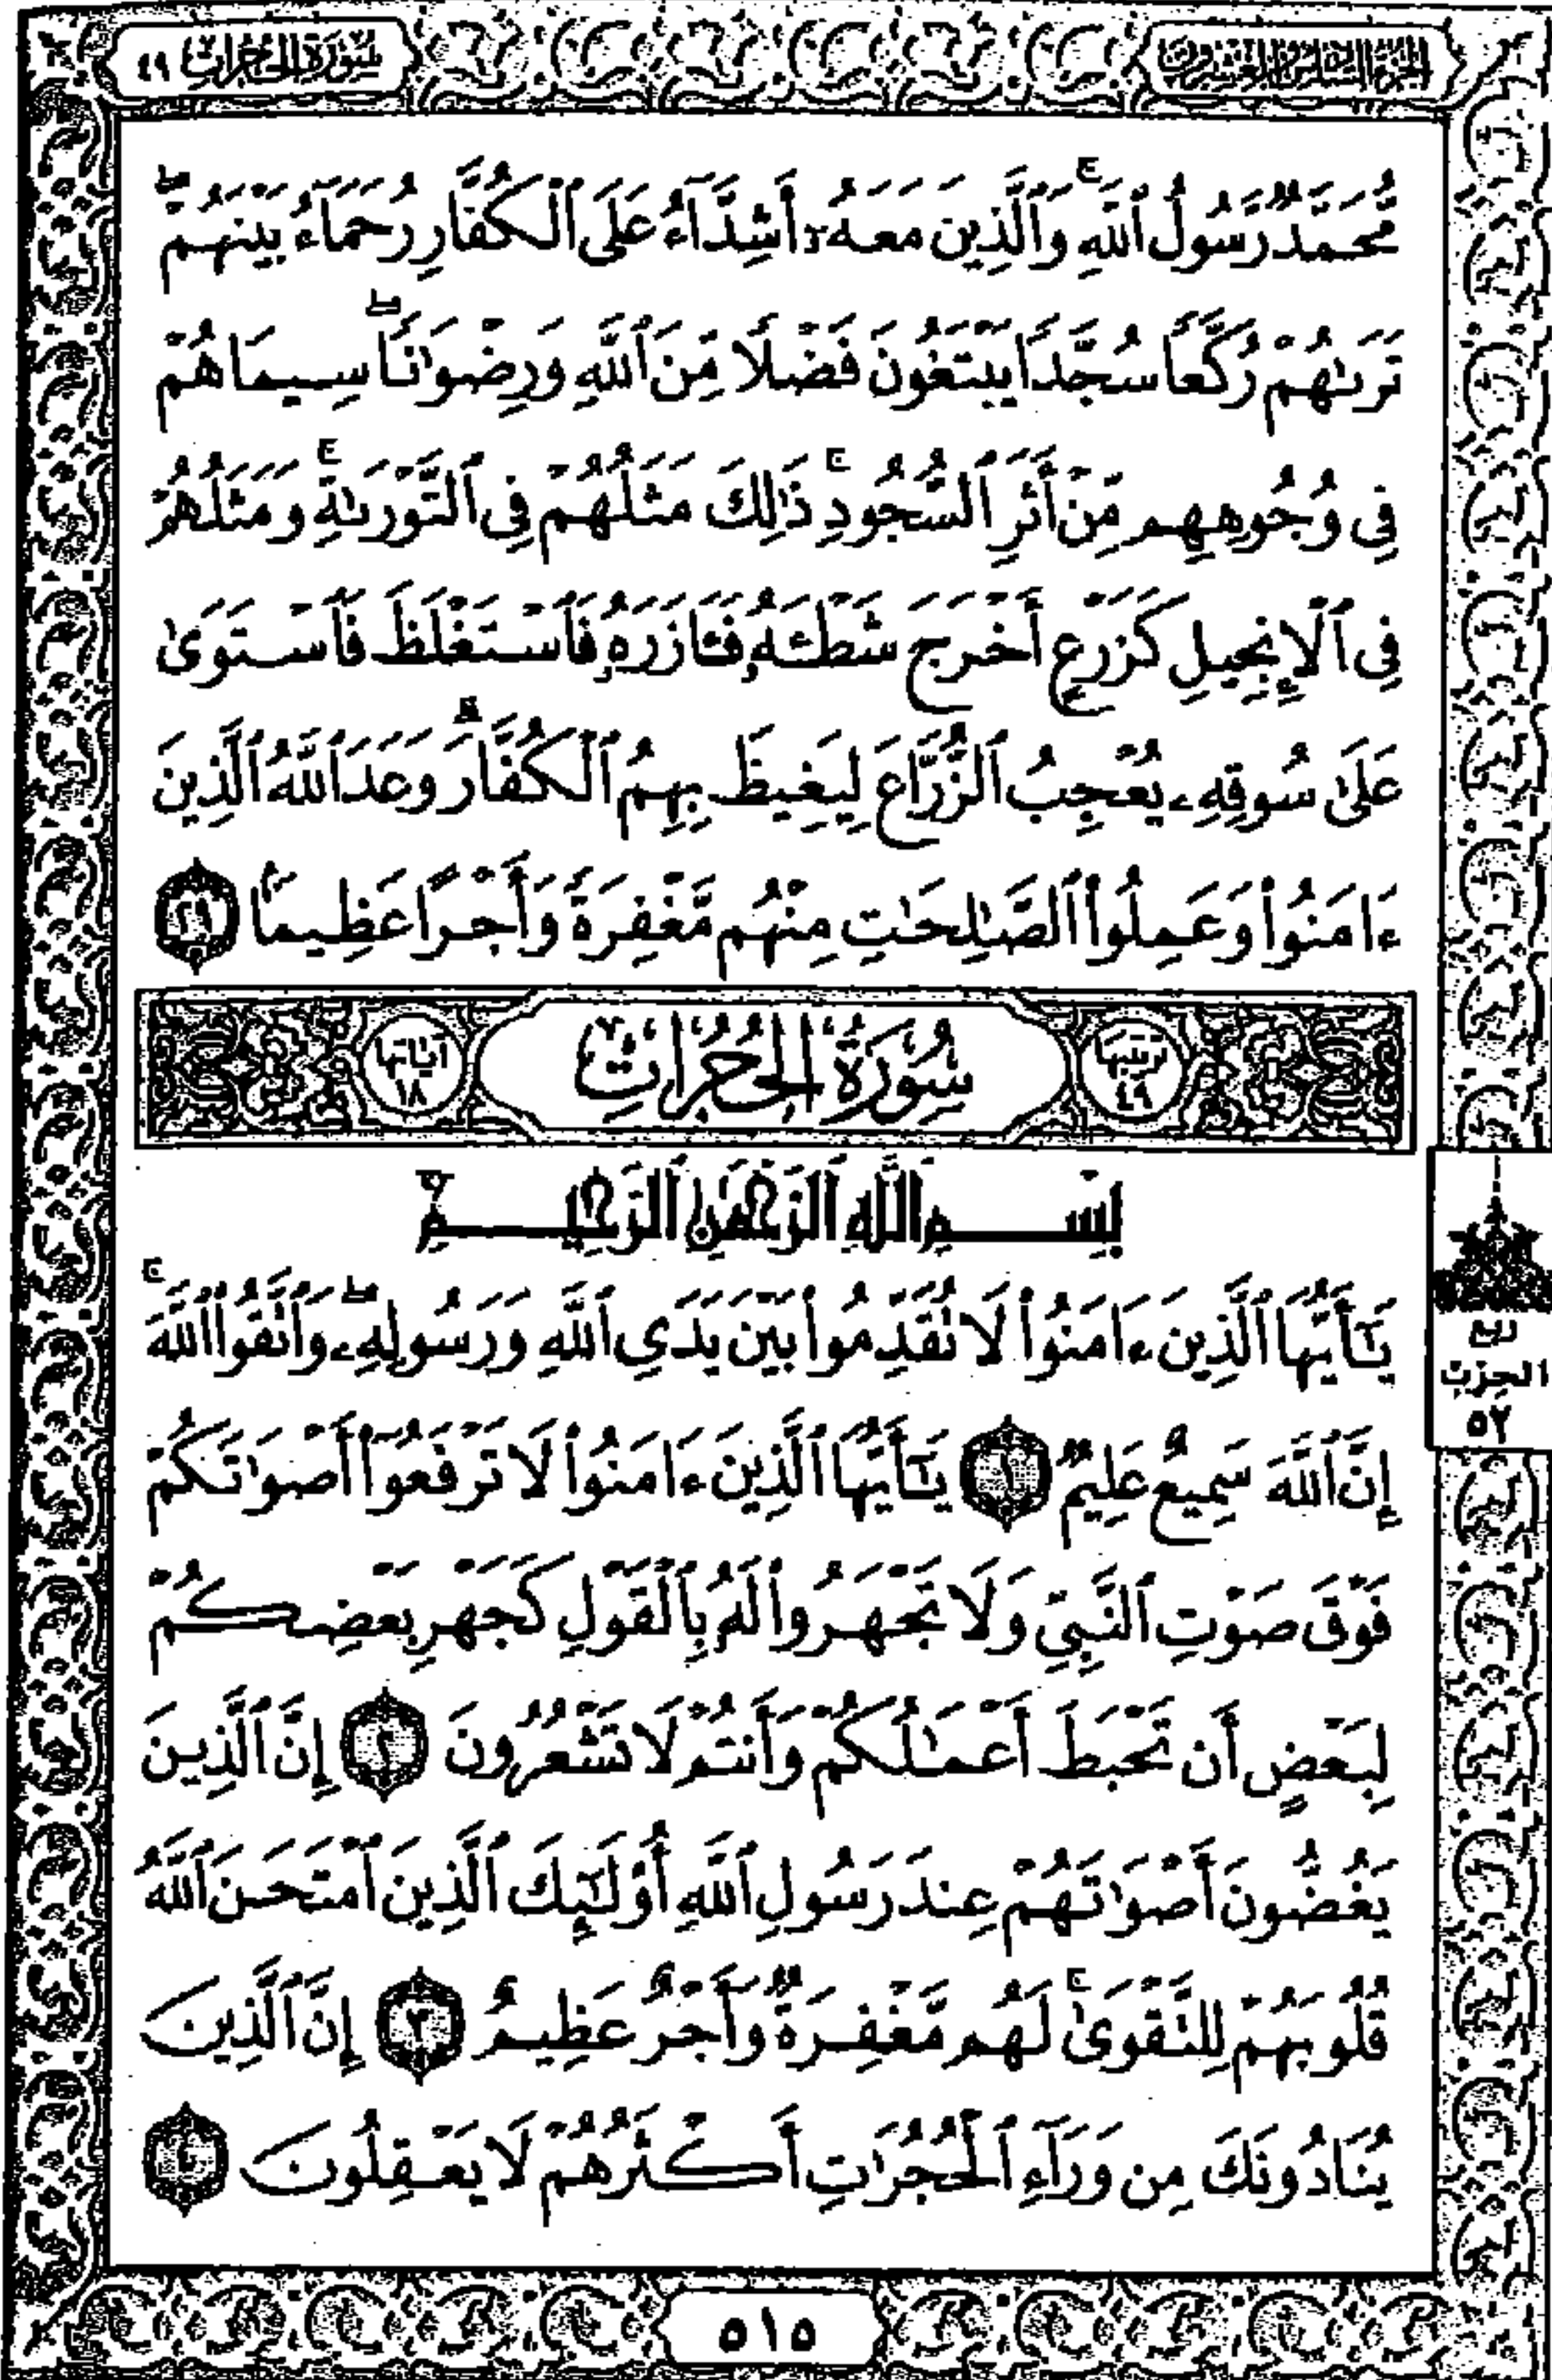 الجزء السادس والعشرون
سورة الحجرات ٤٩
مُّحَمَّدٌ رَّسُولُ ٱللَّهِ ۚ وَٱلَّذِينَ مَعَهُۥٓ أَشِدَّآءُ عَلَى ٱلْكُفَّارِ رُحَمَآءُ بَيْنَهُمْ ۖ
تَرَىٰهُمْ رُكَّعًا سُجَّدًا يَبْتَغُونَ فَضْلًا مِّنَ ٱللَّهِ وَرِضْوَٰنًا ۖ سِيمَاهُمْ
فِى وُجُوهِهِم مِّنْ أَثَرِ ٱلسُّجُودِ ۚ ذَٰلِكَ مَثَلُهُمْ فِى ٱلتَّوْرَىٰةِ ۚ وَمَثَلُهُمْ
فِى ٱلْإِنجِيلِ كَزَرْعٍ أَخْرَجَ شَطْـَٔهُۥ فَـَٔازَرَهُۥ فَٱسْتَغْلَظَ فَٱسْتَوَىٰ
عَلَىٰ سُوقِهِۦ يُعْجِبُ ٱلزُّرَّاعَ لِيَغِيظَ بِهِمُ ٱلْكُفَّارَ ۗ وَعَدَ ٱللَّهُ ٱلَّذِينَ
ءَامَنُوا۟ وَعَمِلُوا۟ ٱلصَّـٰلِحَـٰتِ مِنْهُم مَّغْفِرَةً وَأَجْرًا عَظِيمًۢا ٢٩
ترتيبها ٤٩ سُورَةُ الحُجُرَاتِ آياتها ١٨
بِسْمِ ٱللَّهِ ٱلرَّحْمَـٰنِ ٱلرَّحِيمِ
يَـٰٓأَيُّهَا ٱلَّذِينَ ءَامَنُوا۟ لَا تُقَدِّمُوا۟ بَيْنَ يَدَىِ ٱللَّهِ وَرَسُولِهِۦ ۖ وَٱتَّقُوا۟ ٱللَّهَ ۚ
إِنَّ ٱللَّهَ سَمِيعٌ عَلِيمٌ ١ يَـٰٓأَيُّهَا ٱلَّذِينَ ءَامَنُوا۟ لَا تَرْفَعُوٓا۟ أَصْوَٰتَكُمْ
فَوْقَ صَوْتِ ٱلنَّبِىِّ وَلَا تَجْهَرُوا۟ لَهُۥ بِٱلْقَوْلِ كَجَهْرِ بَعْضِكُمْ
لِبَعْضٍ أَن تَحْبَطَ أَعْمَـٰلُكُمْ وَأَنتُمْ لَا تَشْعُرُونَ ٢ إِنَّ ٱلَّذِينَ
يَغُضُّونَ أَصْوَٰتَهُمْ عِندَ رَسُولِ ٱللَّهِ أُو۟لَـٰٓئِكَ ٱلَّذِينَ ٱمْتَحَنَ ٱللَّهُ
قُلُوبَهُمْ لِلتَّقْوَىٰ ۚ لَهُم مَّغْفِرَةٌ وَأَجْرٌ عَظِيمٌ ٣ إِنَّ ٱلَّذِينَ
يُنَادُونَكَ مِن وَرَآءِ ٱلْحُجُرَٰتِ أَكْثَرُهُمْ لَا يَعْقِلُونَ ٤
ربع
الحزب
٥٢
٥١٥